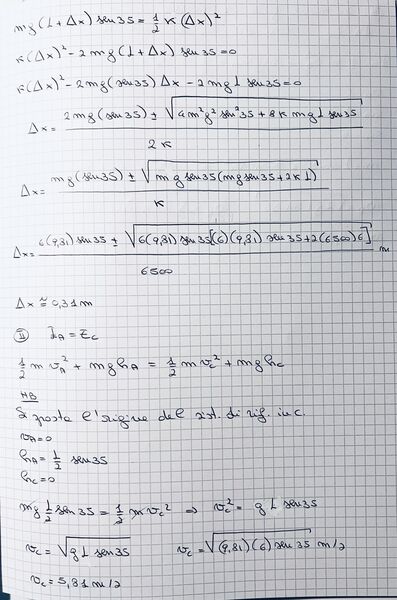 mg(l+Δx) sen35 = 1/2 k(Δx)²
k(Δx)² - 2mg(l+Δx) sen35=0
k(Δx)² - 2mg(sen35) Δx - 2mgl sen35=0
Δx = (2mg(sen35) ± √(4m²g² sen²35 + 8k mgl sen35)) / 2k
Δx = (mg(sen35) ± √(mg sen35(mg sen35+2kl))) / k
Δx = (6(9,81) sen35 ± √(6(9,81) sen35[(6)(9,81) sen35+2(6500)6])) / 6500 m
Δx ≅ 0,31m
II) EA = EC
1/2 m vA² + mghA = 1/2 m vC² + mghC
NB
Si poste l'origine del sist. di rif. in c.
vA=0
hA = 1/2 sen35
hC=0
mg 1/2 sen35 = 1/2 m vC² ⇒ vC² = g l sen35
vC = √(g l sen35) vC = √((9,81)(6) sen35) m/s
vC = 5,81 m/s